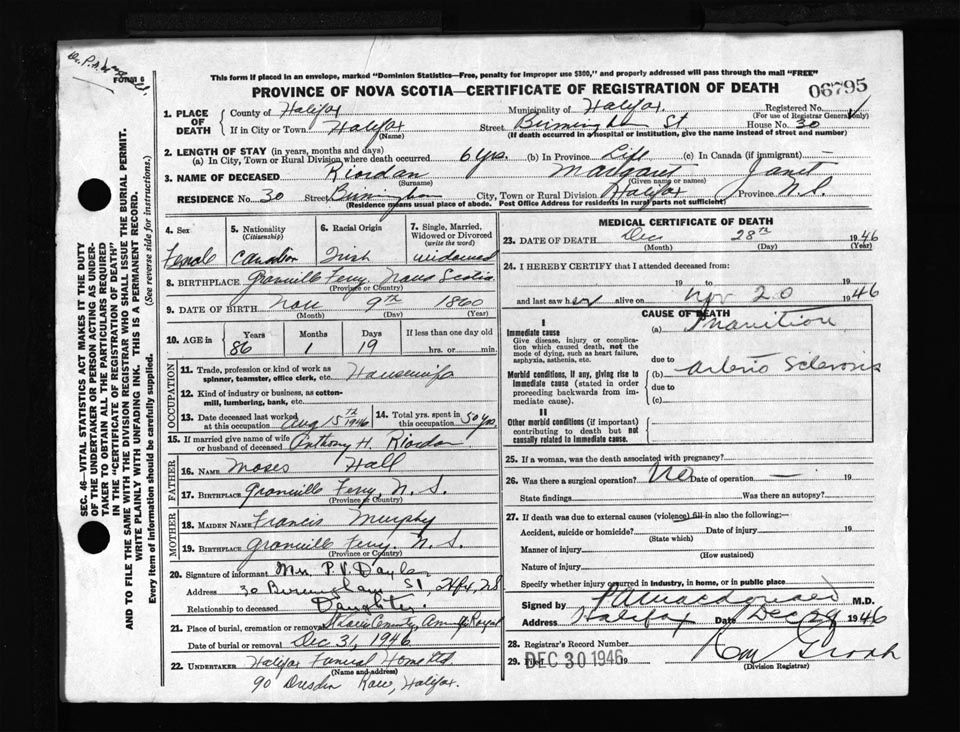 FORM 6
This form if placed in an envelope, marked "Dominion Statistics—Free, penalty for improper use $300," and properly addressed will pass through the mail "FREE"
PROVINCE OF NOVA SCOTIA—CERTIFICATE OF REGISTRATION OF DEATH
06795
1. PLACE OF DEATH
County of Halifax Municipality of Halifax. Registered No.
(For use of Registrar General only)
If in City or Town Halifax Street Birmingham St House No. 30
(Name) (If death occurred in a hospital or institution, give the name instead of street and number)
2. LENGTH OF STAY (in years, months and days)
(a) In City, Town or Rural Division where death occurred 6 yrs. (b) In Province Life (c) In Canada (if immigrant) —
3. NAME OF DECEASED Riordan Margaret Janet
(Surname) (Given name or names)
RESIDENCE No. 30 Street Birmingham City, Town or Rural Division Halifax Province N.S.
(Residence means usual place of abode. Post Office Address for residents in rural parts not sufficient)
4. Sex
Female
5. Nationality
(Citizenship)
Canadian
6. Racial Origin
Irish
7. Single, Married, Widowed or Divorced
(write the word)
widowed
8. BIRTHPLACE Granville Ferry, Nova Scotia.
(Province or Country)
9. DATE OF BIRTH Nov 9th 1860
(Month) (Day) (Year)
10. AGE in
Years Months Days If less than one day old
86 1 19 hrs. or min.
OCCUPATION
11. Trade, profession or kind of work as spinner, teamster, office clerk, etc. Housewife
12. Kind of industry or business, as cotton-mill, lumbering, bank, etc.
13. Date deceased last worked at this occupation Aug 15th 1946
14. Total yrs. spent in this occupation 50 yrs.
15. If married give name of wife or husband of deceased Anthony H. Riordan
FATHER
16. NAME Moses Hall
17. BIRTHPLACE Granville Ferry, N.S.
(Province or Country)
MOTHER
18. MAIDEN NAME Francis Murphy
19. BIRTHPLACE Granville Ferry, N.S.
(Province or Country)
20. Signature of informant Mrs. P.V. Doyle
Address 30 Birmingham St, Hfx, NS
Relationship to deceased Daughter.
21. Place of burial, cremation or removal County, Royal
Date of burial or removal Dec 31, 1946
22. UNDERTAKER Halifax Funeral Home Ltd
(Name and address)
90 Dresden Row, Halifax.
MEDICAL CERTIFICATE OF DEATH
23. DATE OF DEATH Dec 28th 1946
(Month) (Day) (Year)
24. I HEREBY CERTIFY that I attended deceased from:
19 to 19
and last saw her alive on Nov 20 1946
CAUSE OF DEATH
I
Immediate cause
Give disease, injury or complication which caused death, not the mode of dying, such as heart failure, asphyxia, asthenia, etc.
(a) Inanition
due to
Morbid conditions, if any, giving rise to immediate cause (stated in order proceeding backwards from immediate cause).
(b) arterio sclerosis
due to
(c)
II
Other morbid conditions (if important) contributing to death but not causally related to immediate cause.
25. If a woman, was the death associated with pregnancy?
26. Was there a surgical operation? No Date of operation — 19
State findings Was there an autopsy?
27. If death was due to external causes (violence) fill in also the following:—
Accident, suicide or homicide? Date of injury 19
(State which)
Manner of injury
(How sustained)
Nature of injury
Specify whether injury occurred in industry, in home, or in public place
Signed by M.D.
Address Halifax Date Dec 1946
28. Registrar's Record Number
29. Filed DEC 30 1946 19
(Division Registrar)
SEC. 46—VITAL STATISTICS ACT MAKES IT THE DUTY
OF THE UNDERTAKER OR PERSON ACTING AS UNDER-
TAKER TO OBTAIN ALL THE PARTICULARS REQUIRED
IN THE "CERTIFICATE OF REGISTRATION OF DEATH"
AND TO FILE THE SAME WITH THE DIVISION REGISTRAR WHO SHALL ISSUE THE BURIAL PERMIT.
WRITE PLAINLY WITH UNFADING INK. THIS IS A PERMANENT RECORD.
Every item of information should be carefully supplied. (See reverse side for instructions.)